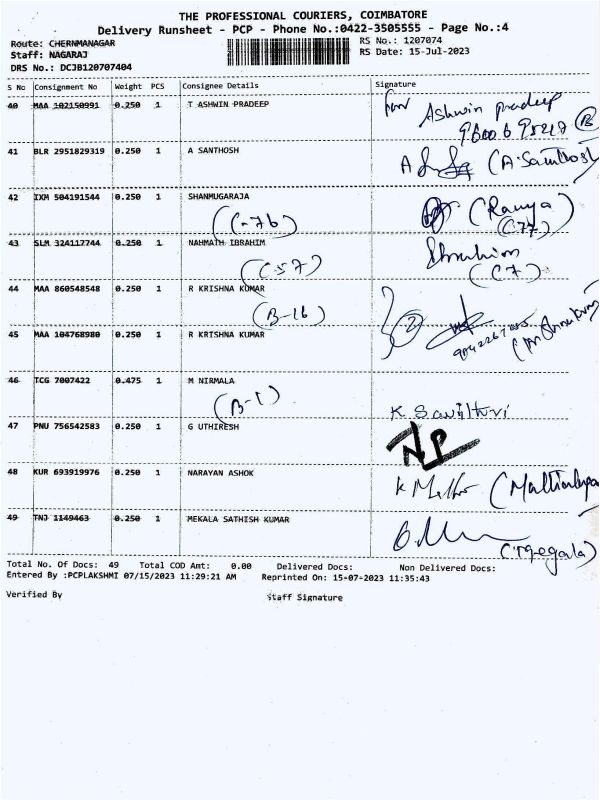 THE PROFESSIONAL COURIERS, COIMBATORE
Delivery Runsheet - PCP - Phone No.:0422-3505555 - Page No.:4
Route: CHERNMANAGAR RS No.: 1207074
Staff: NAGARAJ RS Date: 15-Jul-2023
DRS No.: DCJB120707404
S No Consignment No Weight PCS Consignee Details Signature
40 MAA 102150991 0.250 1 T ASHWIN PRADEEP for Ashwin pradeep
41 BLR 2951829319 0.250 1 A SANTHOSH (A. Santhosh)
42 IXM 504191544 0.250 1 SHANMUGARAJA (Ranya)
(C-76) (C77)
43 SLM 324117744 0.250 1 NAHMATH IBRAHIM Ibrahim
(C-57) (C7)
44 MAA 860548548 0.250 1 R KRISHNA KUMAR
(B-16) (2)
45 MAA 104768980 0.250 1 R KRISHNA KUMAR
46 TCG 7007422 0.475 1 M NIRMALA
(B-1) K
47 PNU 756542583 0.250 1 G UTHIRESH NP
48 KUR 693919976 0.250 1 NARAYAN ASHOK K
49 TNJ 1149463 0.250 1 MEKALA SATHISH KUMAR
(Megala)
Total No. Of Docs: 49 Total COD Amt: 0.00 Delivered Docs: Non Delivered Docs:
Entered By :PCPLAKSHMI 07/15/2023 11:29:21 AM Reprinted On: 15-07-2023 11:35:43
Verified By Staff Signature